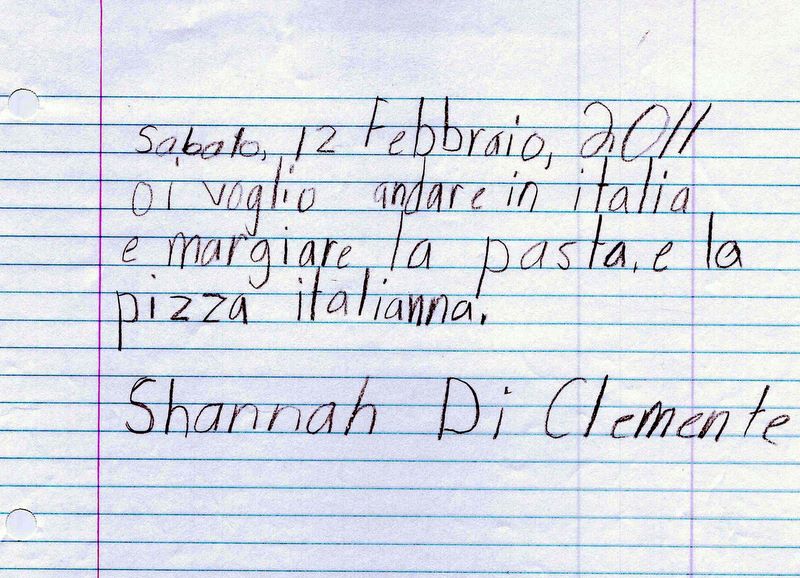 Sabato, 12 Febbraio, 2011
oi voglio andare in italia
e margiare la pasta, e la
pizza italianna.
Shannah Di Clemente